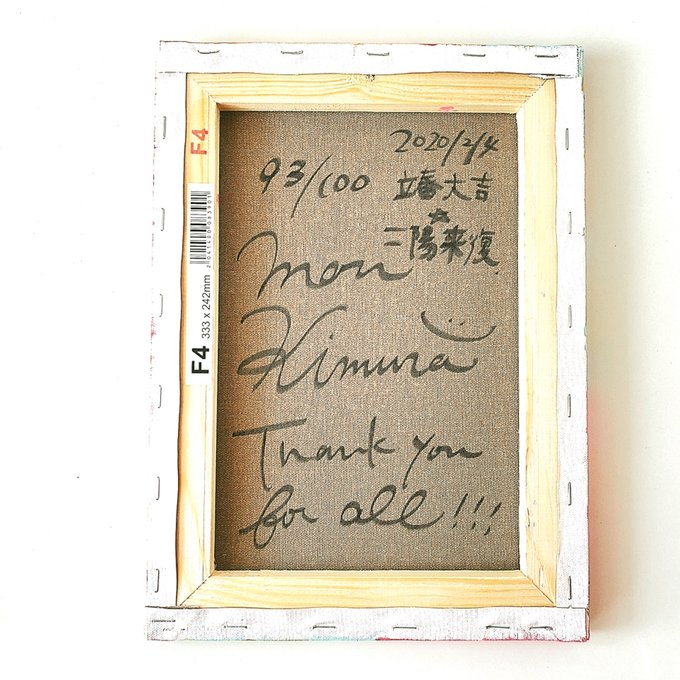 2020/2/4
93/100
立春大吉
☆
三陽来復
mori
Kimura
Thank you
for all!!!
F4
F4 333 x 242mm